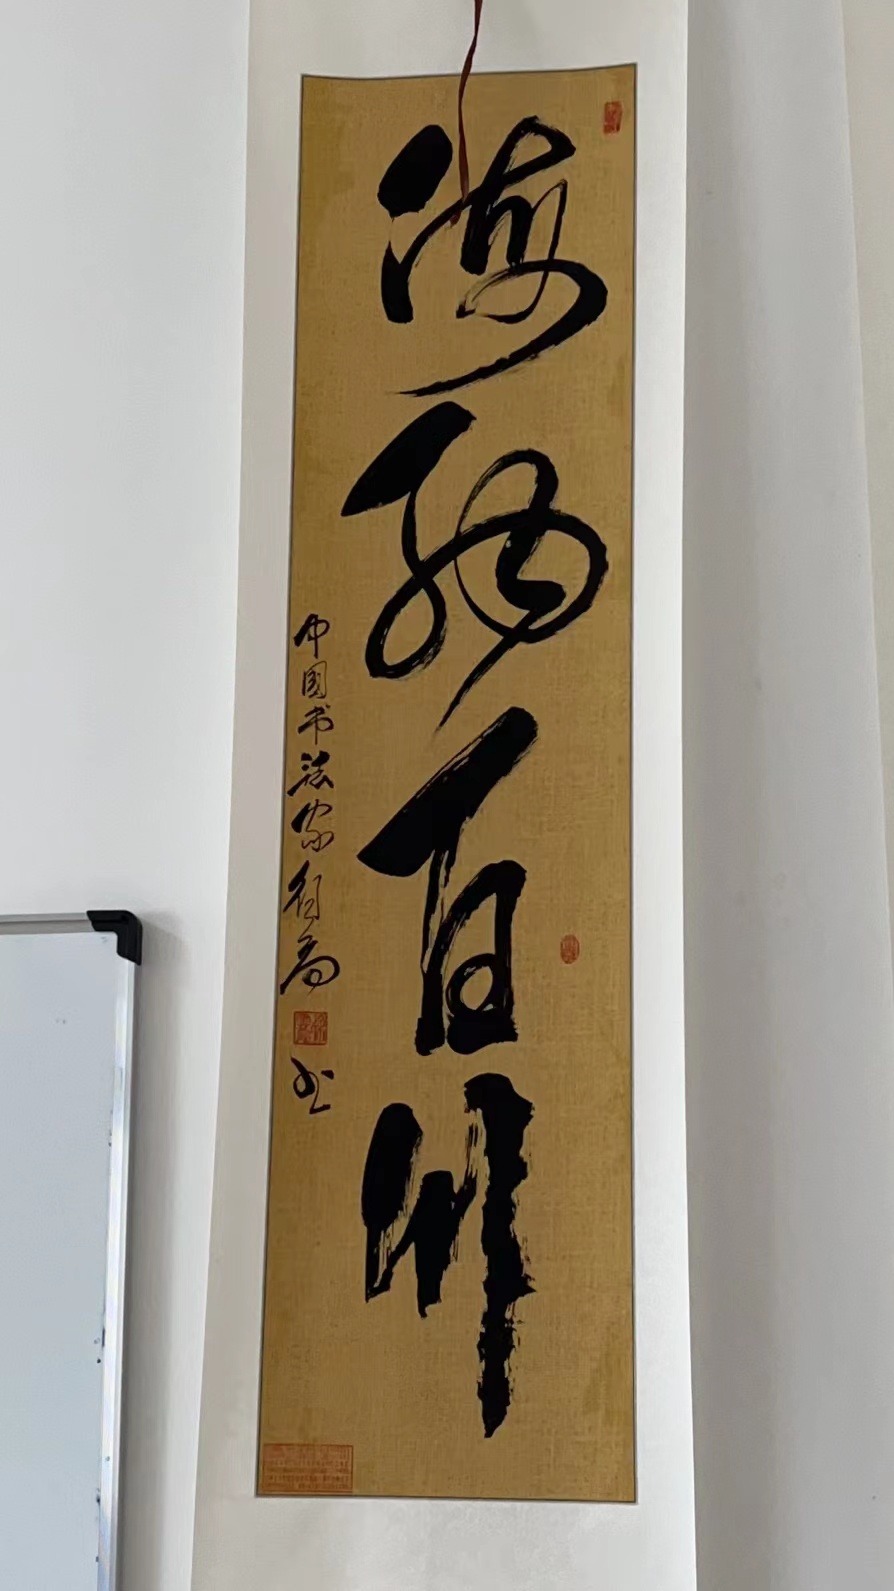 海纳百川
中国书法家
书